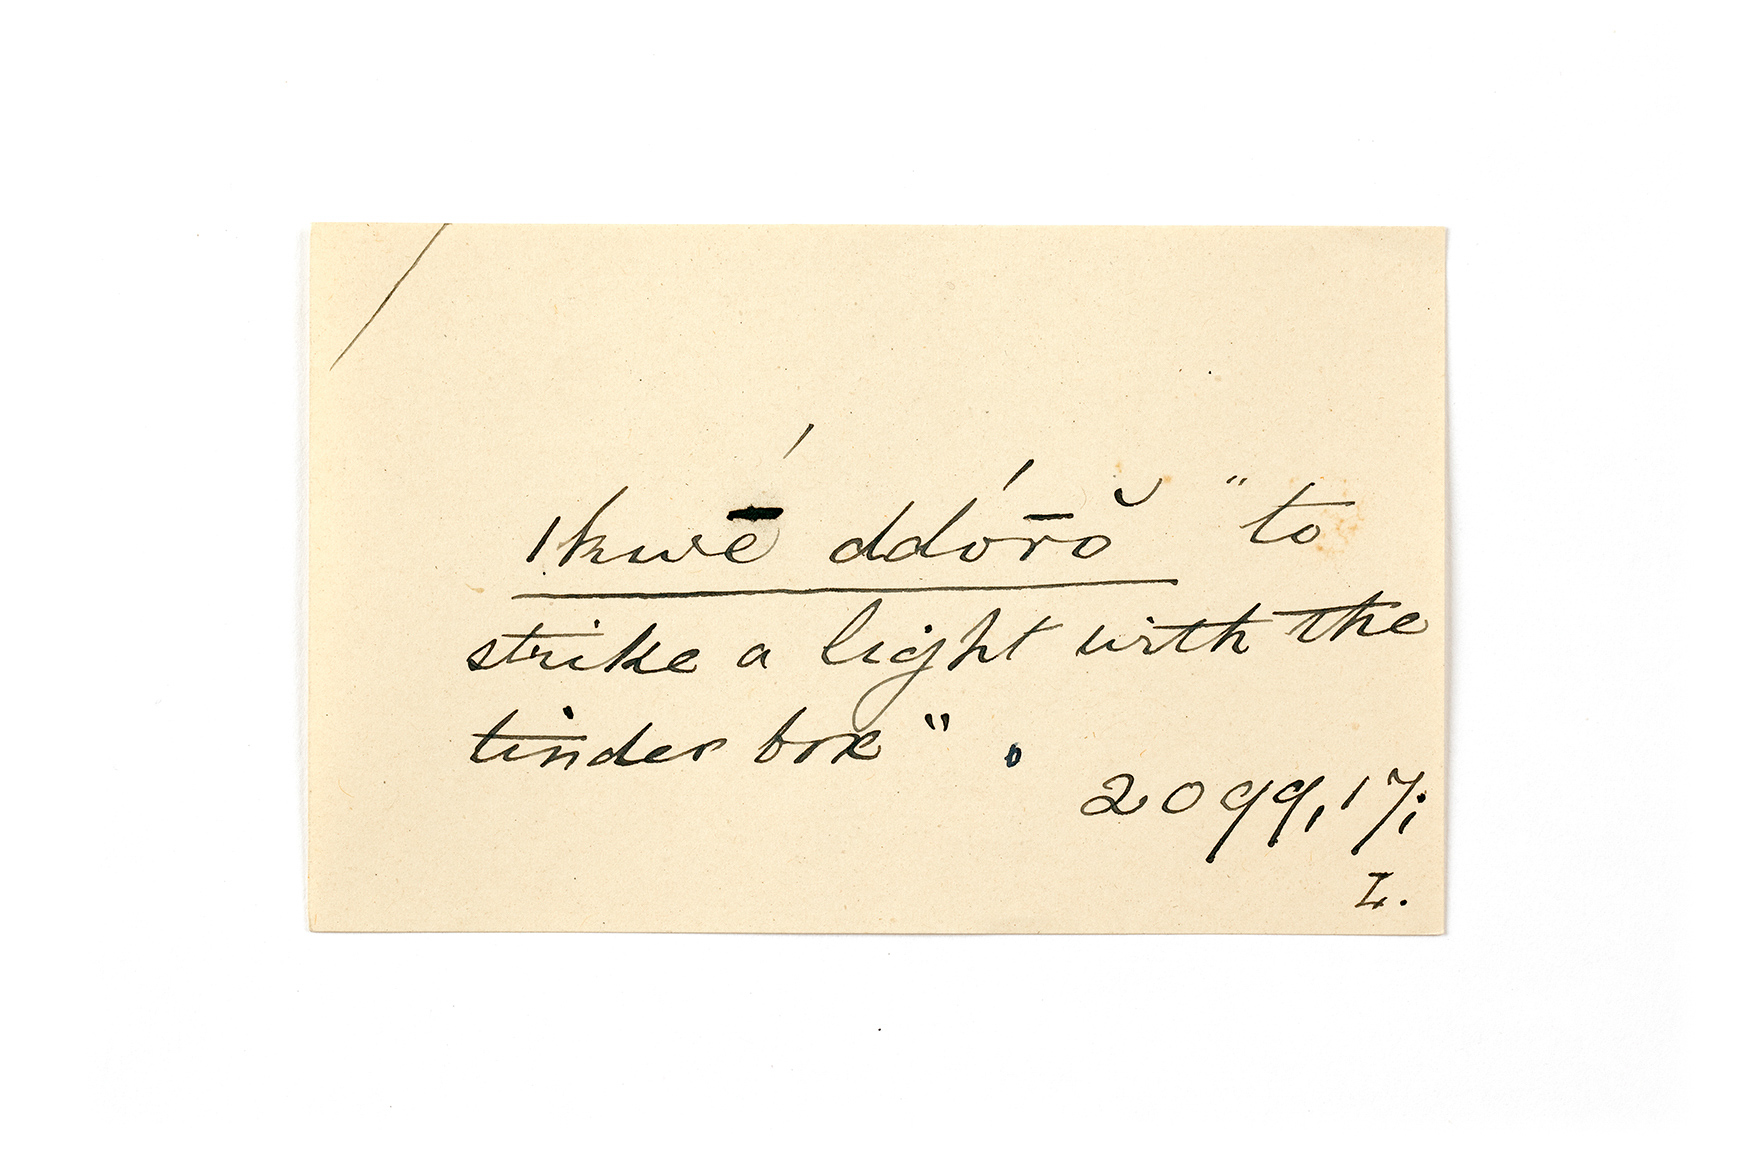 |kwḗ ddórōŏ "to
strike a light with the
tinder box".
2099,17;
L.